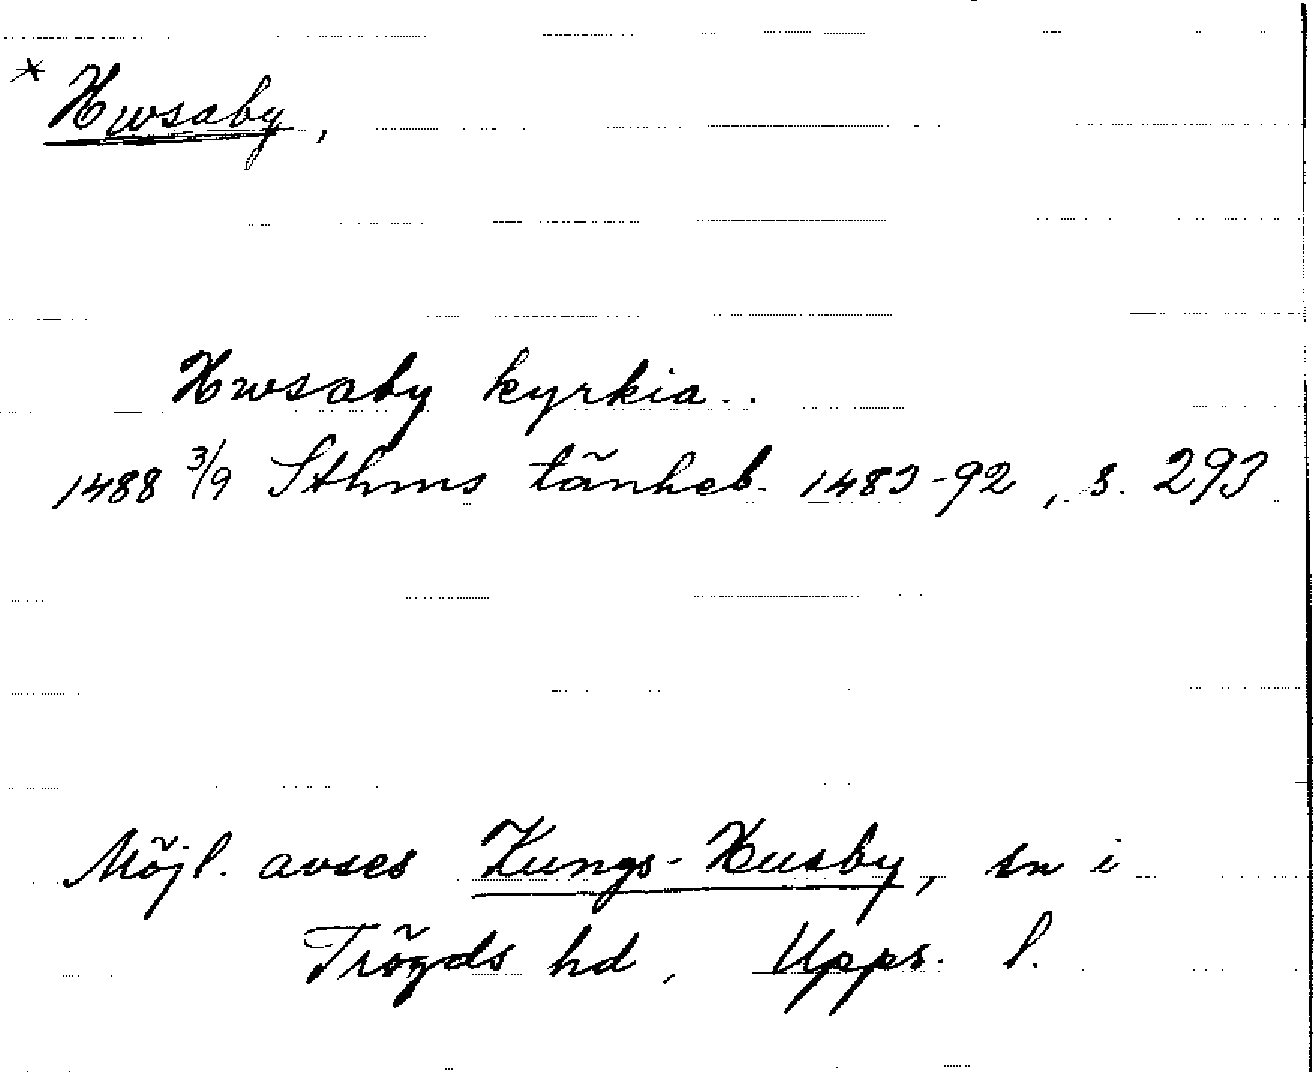 * Hwsaby,
Hwsaby kyrkia..
1488 3/9 Sthms tänkeb. 1483-92, s. 293
Möjl. avses Kungs-Husby, sn i
Trögds hd, Upps. l.